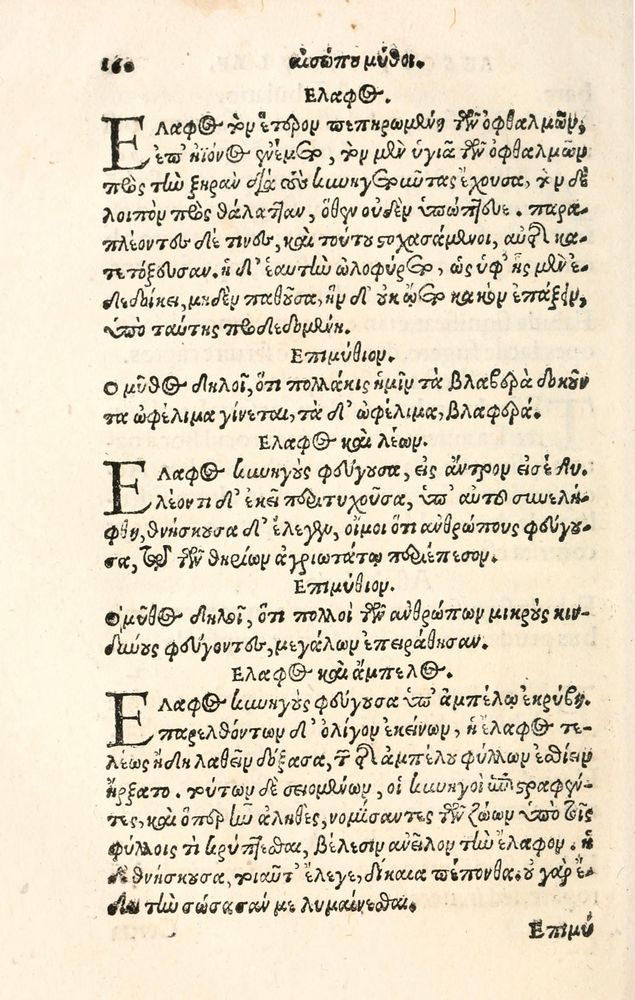 160 αἰσώπου μῦθοι.
Ελαφος.
Ελαφος τὸν ἕτερον πεπηρωμένη τῶν ὀφθαλμῶν,
ἐπ' ἠϊόνος ἐνέμετο, τὸν μὲν ὑγιᾶ τῶν ὀφθαλμῶν
πρὸς τὴν ξηρὰν διὰ τοὺς κυνηγετοῦντας ἔχουσα, τὸν δὲ
λοιπὸν πρὸς θάλατταν, ὅθεν οὐδὲν ὑπώπτευε. παρα-
πλέοντες δέ τινες, καὶ τοῦτο στοχασάμενοι, αὐτὴν κα-
τετόξευσαν. ἡ δ' ἑαυτὴν ὠλοφύρετο, ὡς ὑφ' ἧς μὲν ἐ-
δεδοίκει, μηδὲν παθοῦσα, ἣν δ' οὐκ ᾤετο κακὸν ἐπάξειν,
ὑπὸ ταύτης προδεδομένη.
Επιμύθιον.
Ο μῦθος δηλοῖ, ὅτι πολλάκις ἡμῖν τὰ βλαβερὰ δοκοῦν
τα ὠφέλιμα γίνεται, τὰ δ' ὠφέλιμα, βλαφερά.
Ελαφος καὶ λέων.
Ελαφος κυνηγοὺς φεύγουσα, εἰς ἄντρον εἰσέδυ.
λέοντι δ' ἐκεῖ περιτυχοῦσα, ὑπ' αὐτοῦ συνελή-
φθη, θνήσκουσα δ' ἔλεγεν, οἴμοι ὅτι ἀνθρώπους φεύγου-
σα, τῷ τῶν θηρίων ἀγριωτάτῳ περιέπεσον.
Επιμύθιον.
Ο μῦθος δηλοῖ, ὅτι πολλοὶ τῶν ἀνθρώπων μικροὺς κιν-
δύνους φεύγοντες, μεγάλων ἐπειράθησαν.
Ελαφος καὶ ἄμπελος.
Ελαφος κυνηγοὺς φεύγουσα ὑπ' ἀμπέλῳ ἐκρύβη.
παρελθόντων δ' ὀλίγον ἐκείνων, ἡ ἔλαφος τε-
λέως ἤδη λαθεῖν δόξασα, τῶν τῆς ἀμπέλου φύλλων ἐσθίειν
ἤρξατο. τούτων δὲ σειομένων, οἱ κυνηγοὶ ἐπιστραφέν-
τες, καὶ ὅπερ ἦν ἀληθὲς, νομίσαντες τῶν ζώων ὑπὸ τοῖς
φύλλοις τὶ κρύπτεσθαι, βέλεσιν ἀνεῖλον τὴν ἔλαφον. ἡ
δὲ θνήσκουσα, τοιαῦτ' ἔλεγε, δίκαια πέπονθα. οὐ γὰρ ἔ-
δει τὴν σώσασάν με λυμαίνεσθαι.
Επιμύ